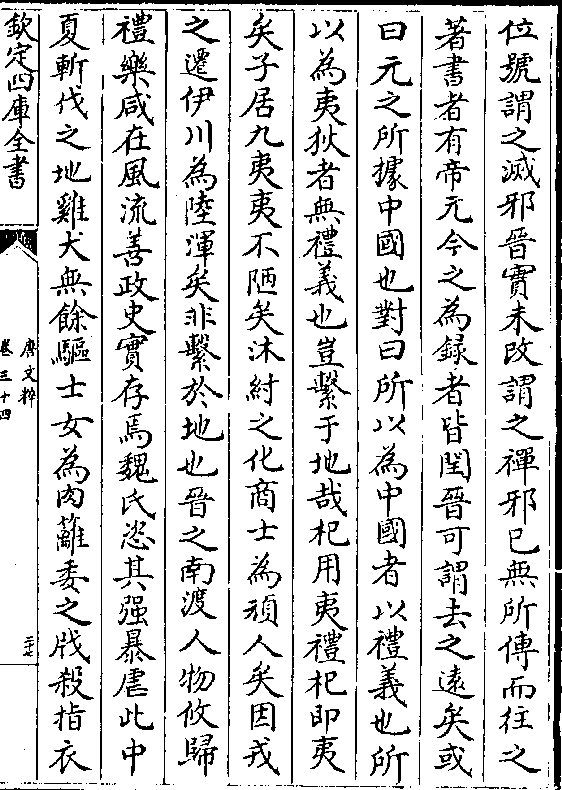 位號謂之滅邪晉實未改謂之禪邪已無所傳而往之
著書者有帝元今之為録者皆閏晉可謂去之遠矣或
曰元之所據中國也對曰所以為中國者以禮義也所
以為夷狄者無禮義也豈繫于地哉杞用夷禮杞即夷
矣子居九夷夷不陋矣沐紂之化商士為頑人矣因戎
之遷伊川為陸渾矣非繫於地也晉之南渡人物攸歸
禮樂咸在風流善政史實存焉魏氏恣其强暴虐此中
夏斬伐之地雞犬無餘驅士女為肉籬委之戕殺指衣
欽定四庫全書
唐文粹
卷三十四